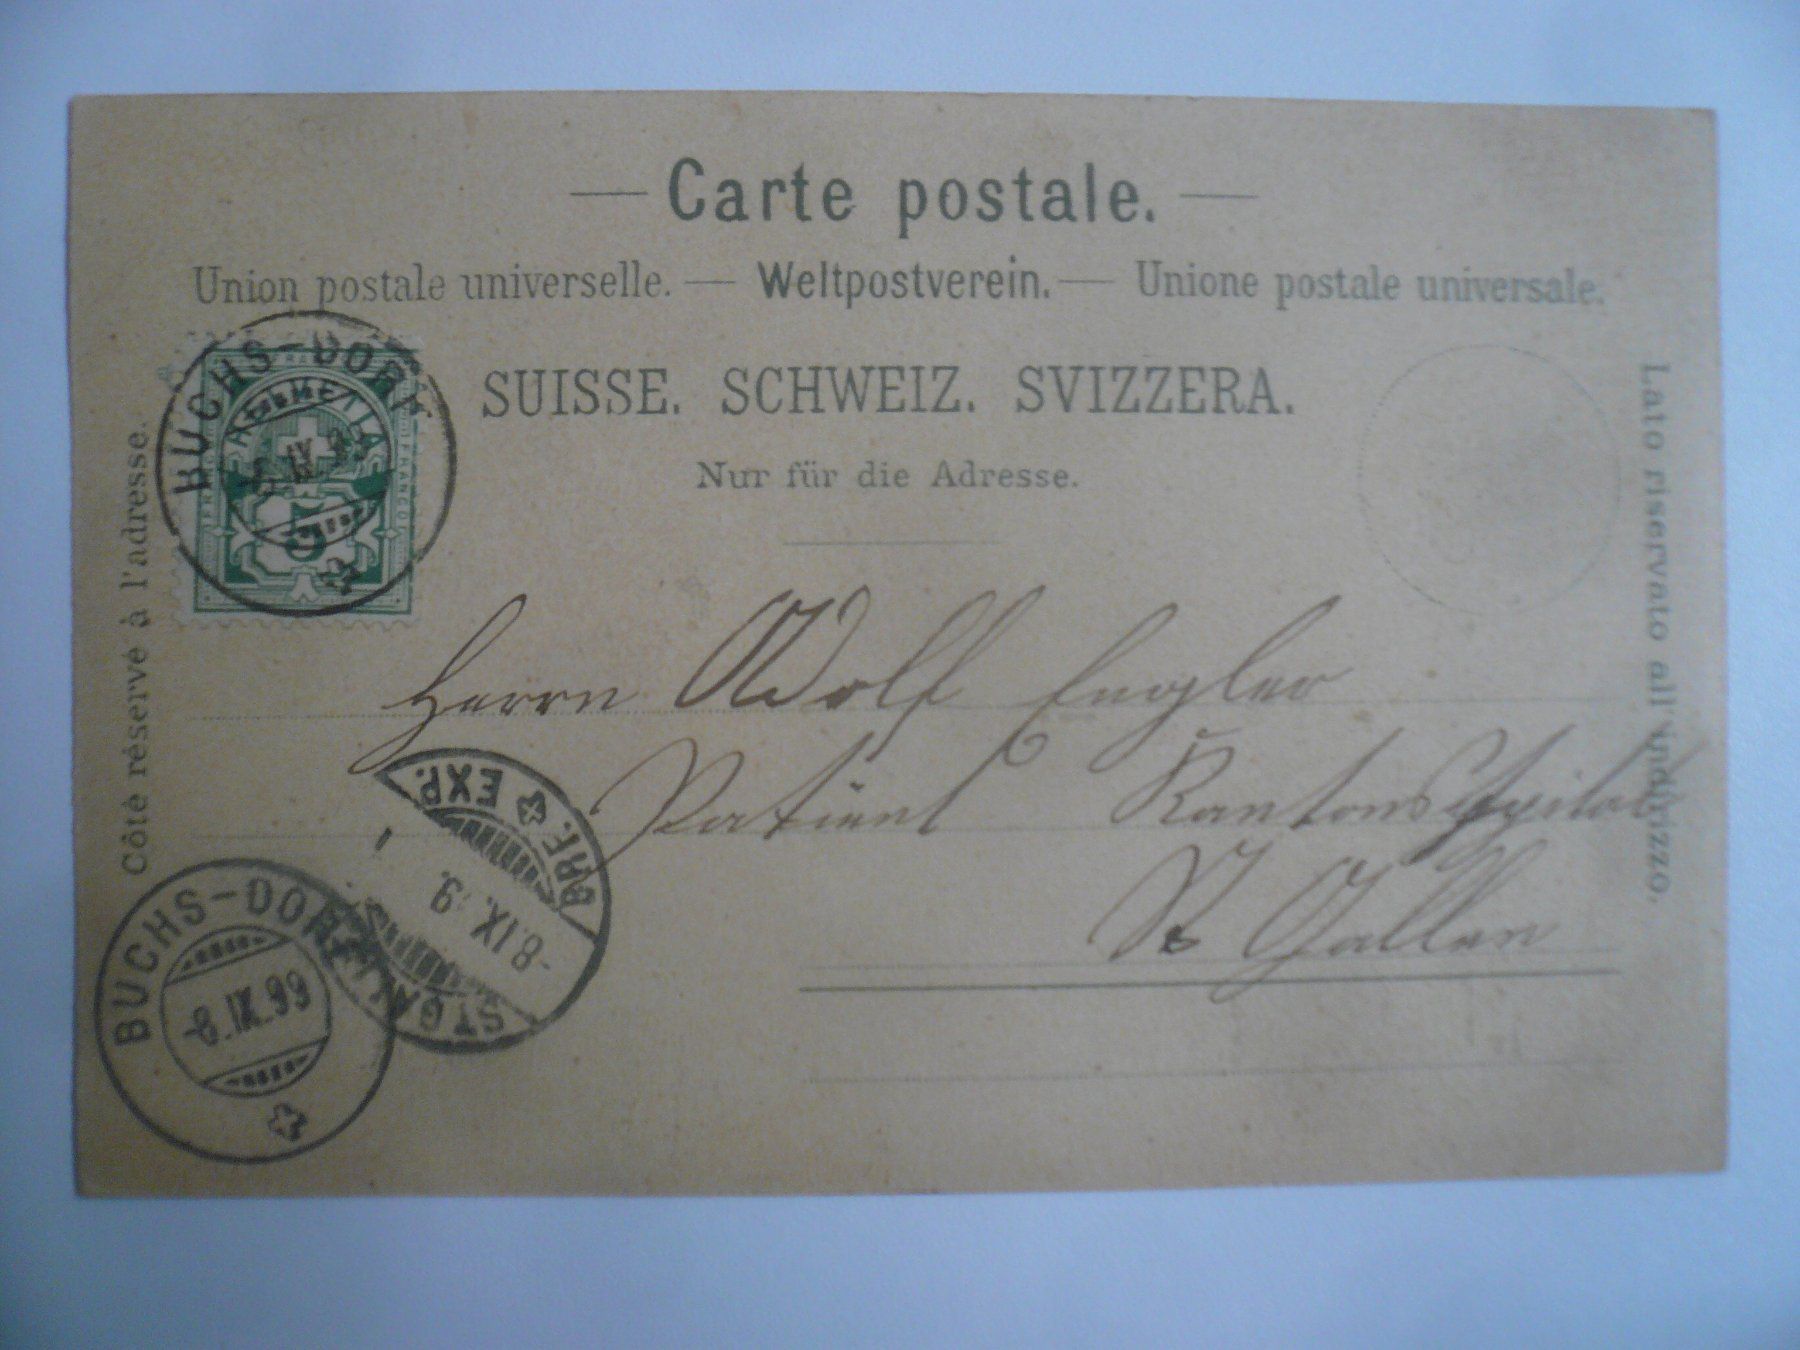 Carte postale.
Union postale universelle. — Weltpostverein. — Unione postale universale.
SUISSE. SCHWEIZ. SVIZZERA.
Nur für die Adresse.
Côté réservé à l'adresse.
Lato riservato all'indirizzo.
BUCHS-DORF
IX
HELVETIA
5
Herrn Adolf Engler
Patient Kantonsspital
St Gallen
ST GALLEN BRF. EXP.
-8.IX.
BUCHS-DORF
-8.IX.99